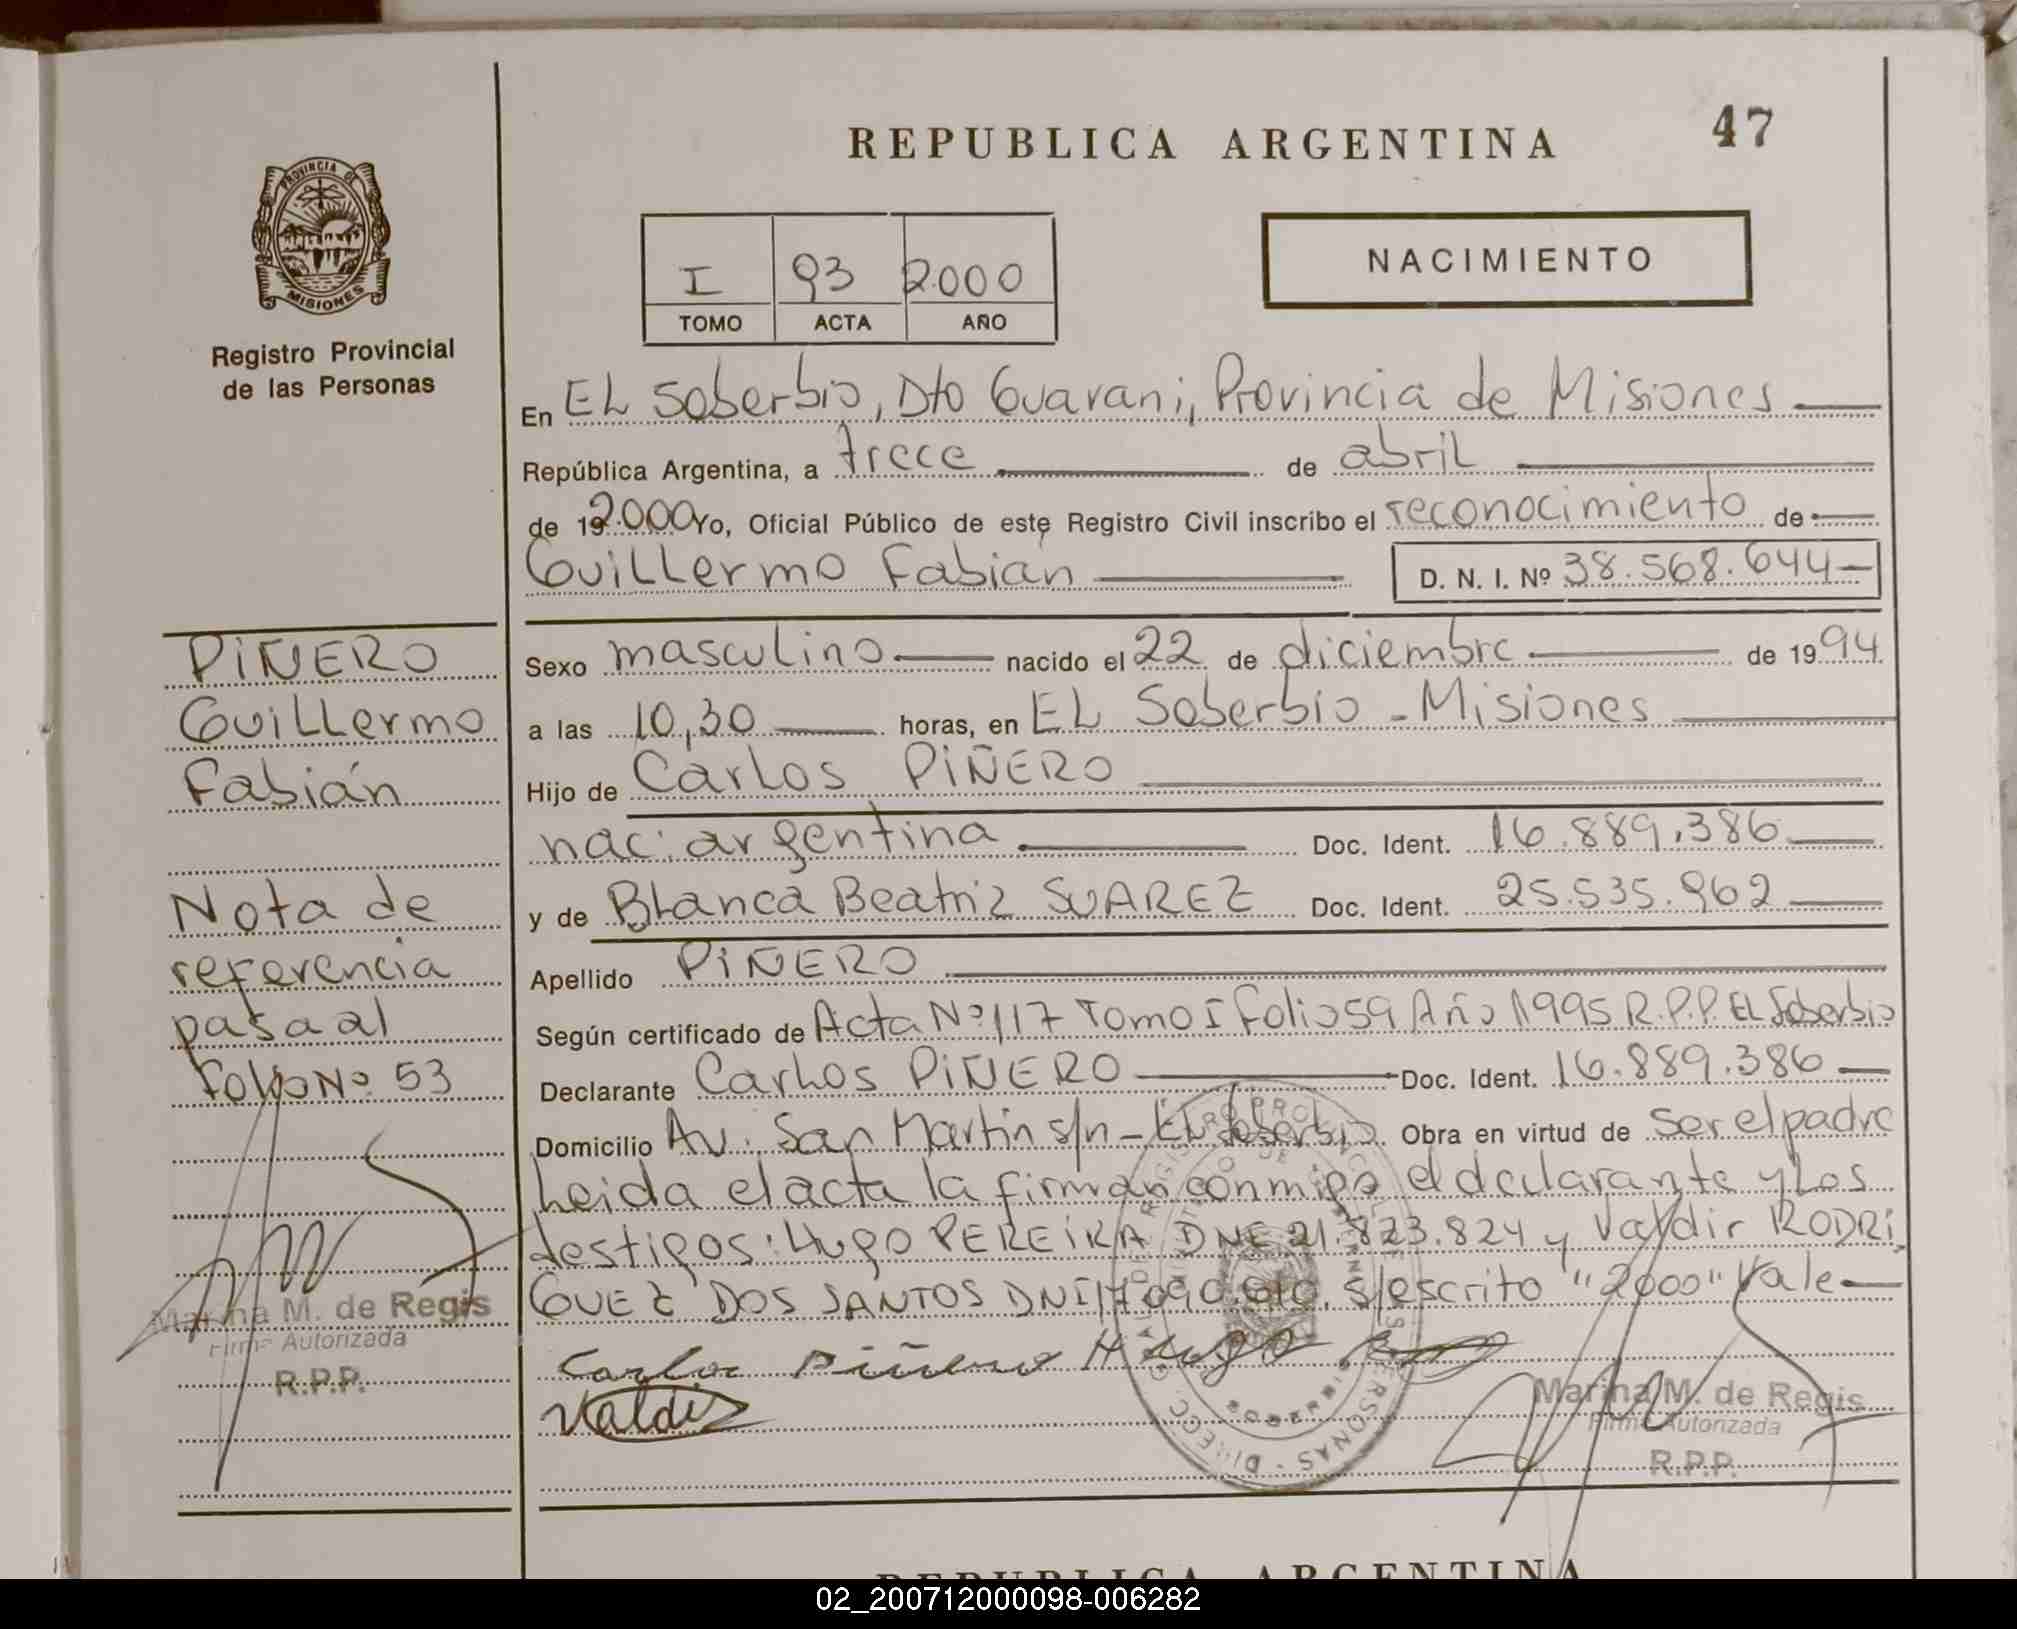 47
REPUBLICA ARGENTINA
PROVINCIA DE
MISIONES
Registro Provincial
de las Personas
I 93 2.000
TOMO ACTA AÑO
NACIMIENTO
En EL Soberbio, Dto Guarani, Provincia de Misiones
República Argentina, a trece de abril
de 19 2.000 Yo, Oficial Público de este Registro Civil inscribo el reconocimiento de
Guillermo Fabian D. N. I. Nº 38.568.644
Sexo masculino nacido el 22 de diciembre de 1994
a las 10,30 horas, en EL Soberbio - Misiones
Hijo de Carlos PIÑERO
nac. argentina Doc. Ident. 16.889.386
y de Blanca Beatriz SUAREZ Doc. Ident. 25.535.962
Apellido PIÑERO
Según certificado de Acta Nº 117 Tomo I Folio 59 Año 1995 R.P.P. EL Soberbio
Declarante Carlos PIÑERO Doc. Ident. 16.889.386
Domicilio Av. San Martin s/n - EL Soberbio Obra en virtud de ser el padre
Leida el acta la firman conmigo el declarante y Los
testigos: Hugo PEREIRA DNI 21.823.824 y Valdir RODRI
GUEZ DOS SANTOS DNI s/escrito "2000" Vale
Carlos Piñero Hugo
Valdir
Marina M. de Regis
Firma Autorizada
R.P.P.
PIÑERO
Guillermo
Fabián
Nota de
referencia
pasa al
Folio Nº 53
Marina M. de Regis
Firma Autorizada
R.P.P.
REPUBLICA ARGENTINA
02_200712000098-006282